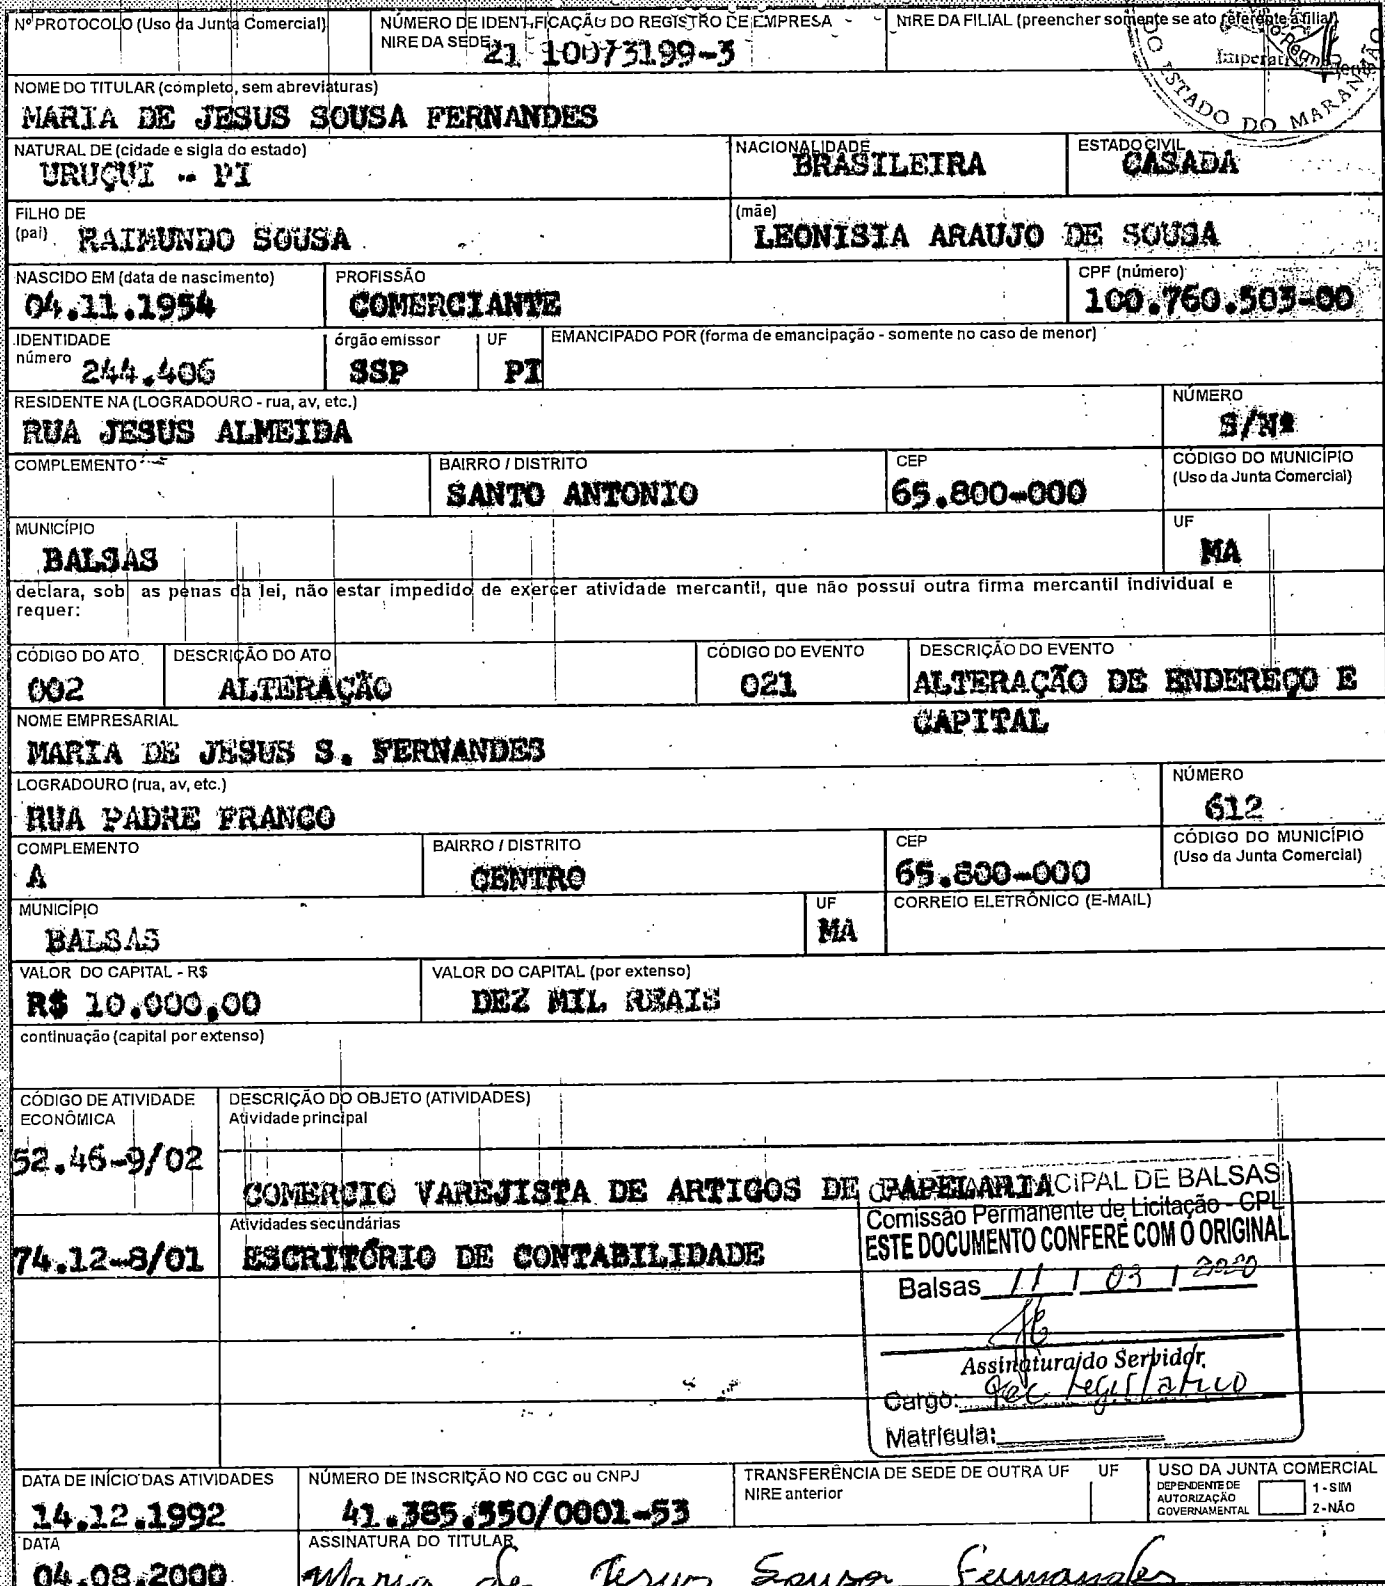 Nº PROTOCOLO (Uso da Junta Comercial)
NÚMERO DE IDENTIFICAÇÃO DO REGISTRO DE EMPRESA
NIRE DA SEDE
21 10073199-3
NIRE DA FILIAL (preencher somente se ato referente à filial)
DO ESTADO DO MARANHÃO
NOME DO TITULAR (completo, sem abreviaturas)
MARIA DE JESUS SOUSA FERNANDES
NATURAL DE (cidade e sigla do estado)
URUÇUI - PI
NACIONALIDADE
BRASILEIRA
ESTADO CIVIL
CASADA
FILHO DE
(pai) RAIMUNDO SOUSA
(mãe)
LEONISIA ARAUJO DE SOUSA
NASCIDO EM (data de nascimento)
04.11.1954
PROFISSÃO
COMERCIANTE
CPF (número)
100.760.503-00
IDENTIDADE
número 244.406
órgão emissor
SSP
UF
PI
EMANCIPADO POR (forma de emancipação - somente no caso de menor)
RESIDENTE NA (LOGRADOURO - rua, av, etc.)
RUA JESUS ALMEIDA
NÚMERO
S/Nº
COMPLEMENTO
BAIRRO / DISTRITO
SANTO ANTONIO
CEP
65.800-000
CÓDIGO DO MUNICÍPIO
(Uso da Junta Comercial)
MUNICÍPIO
BALSAS
UF
MA
declara, sob as penas da lei, não estar impedido de exercer atividade mercantil, que não possui outra firma mercantil individual e
requer:
CÓDIGO DO ATO
002
DESCRIÇÃO DO ATO
ALTERAÇÃO
CÓDIGO DO EVENTO
021
DESCRIÇÃO DO EVENTO
ALTERAÇÃO DE ENDEREÇO E
CAPITAL
NOME EMPRESARIAL
MARIA DE JESUS S. FERNANDES
LOGRADOURO (rua, av, etc.)
RUA PADRE FRANCO
NÚMERO
612
COMPLEMENTO
A
BAIRRO / DISTRITO
CENTRO
CEP
65.800-000
CÓDIGO DO MUNICÍPIO
(Uso da Junta Comercial)
MUNICÍPIO
BALSAS
UF
MA
CORREIO ELETRÔNICO (E-MAIL)
VALOR DO CAPITAL - R$
R$ 10.000,00
VALOR DO CAPITAL (por extenso)
DEZ MIL REAIS
continuação (capital por extenso)
CÓDIGO DE ATIVIDADE
ECONÔMICA
DESCRIÇÃO DO OBJETO (ATIVIDADES)
Atividade principal
52.46-9/02
COMERCIO VAREJISTA DE ARTIGOS DE PAPELARIA
Atividades secundárias
74.12-8/01
ESCRITÓRIO DE CONTABILIDADE
MUNICIPAL DE BALSAS
Comissão Permanente de Licitação - CPL
ESTE DOCUMENTO CONFERE COM O ORIGINAL
Balsas 11 / 03 / 2020
Assinatura do Servidor
Cargo:
Matrícula:
DATA DE INÍCIO DAS ATIVIDADES
14.12.1992
NÚMERO DE INSCRIÇÃO NO CGC ou CNPJ
41.385.550/0001-53
TRANSFERÊNCIA DE SEDE DE OUTRA UF
NIRE anterior
UF
USO DA JUNTA COMERCIAL
DEPENDENTE DE
AUTORIZAÇÃO
GOVERNAMENTAL
1 - SIM
2 - NÃO
DATA
04.08.2000
ASSINATURA DO TITULAR
Maria de Jesus Sousa Fernandes